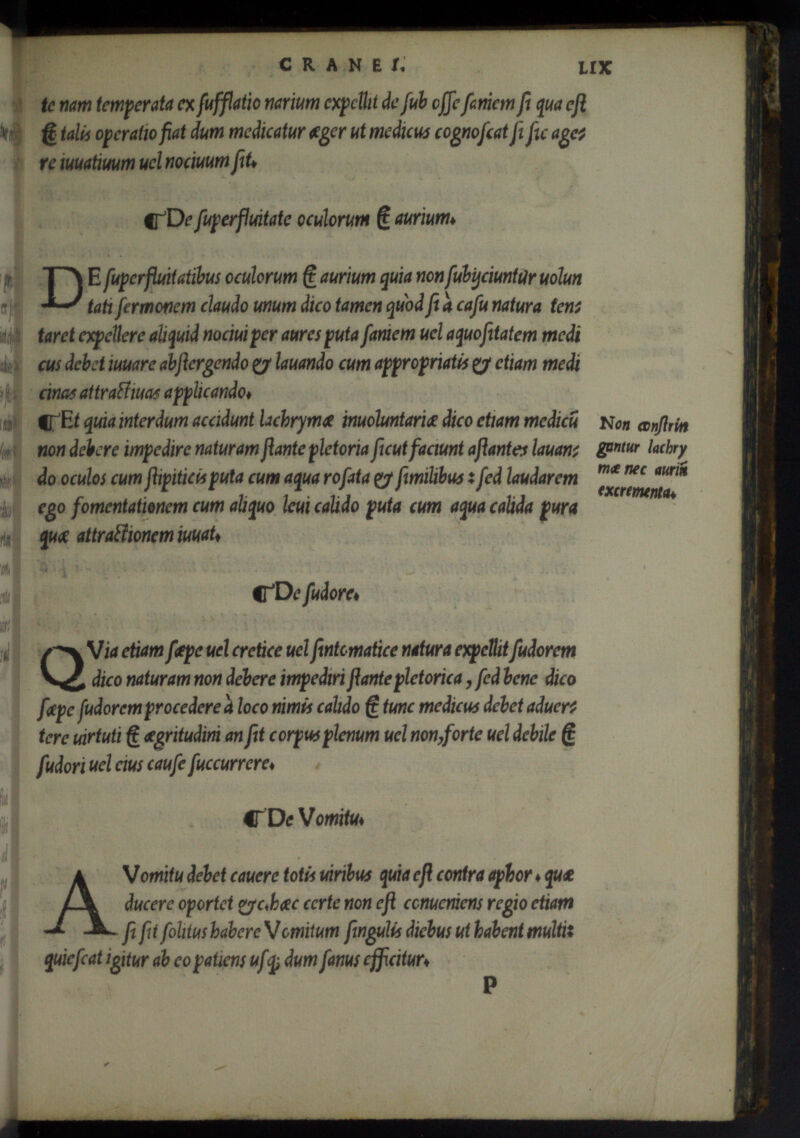 CRANEI.
LIX
te nam temperata ex sufflatio narium expellit de sub osse saniem si qua est
& talis operatio fiat dum medicatur æger ut medicus cognoscat si sic age=
re iuuatiuum uel nociuum sit.
¶De superfluitate oculorum & aurium.
DE superfluitatibus oculorum & aurium quia non subijciuntur uolun
tati sermonem claudo unum dico tamen quod si à casu natura ten=
taret expellere aliquid nociui per aures puta saniem uel aquositatem medi
cus debet iuuare abstergendo & lauando cum appropriatis & etiam medi
cinas attractiuas applicando.
¶Et quia interdum accidunt lachrymæ inuoluntariæ dico etiam medicũ
non debere impedire naturam stante pletoria sicut faciunt astantes lauan=
do oculos cum stipiticis puta cum aqua rosata & similibus: sed laudarem
ego fomentationem cum aliquo leui calido puta cum aqua calida pura
quæ attractionem iuuat.
Non constrin
gantur lachry
mæ nec auriũ
excrementa.
¶De sudore.
QVia etiam sæpe uel cretice uel sintomatice natura expellit sudorem
dico naturam non debere impediri stante pletorica, sed bene dico
sæpe sudorem procedere à loco nimis calido & tunc medicus debet aduer=
tere uirtuti & ægritudini an sit corpus plenum uel non, forte uel debile &
sudori uel eius cause succurrere.
¶De Vomitu.
A Vomitu debet cauere totis uiribus quia est contra aphor. quæ
ducere oportet &c. hæc certe non est conueniens regio etiam
si sit solitus habere Vomitum singulis diebus ut habent multi:
quiescat igitur ab eo patiens usq; dum sanus efficitur.
P